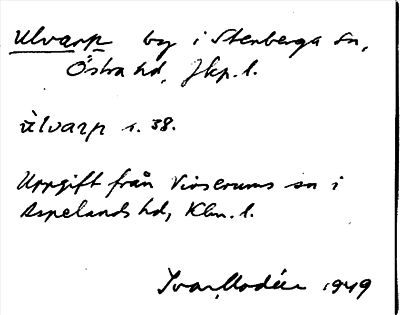 Ulvarp by i Stenberga sn,
Östra hd, Jkp. l.
ùlvarp s. 38.
Uppgift från Virserums sn i
Aspelands hd, Klm. l.
Ivar Modéer 1949